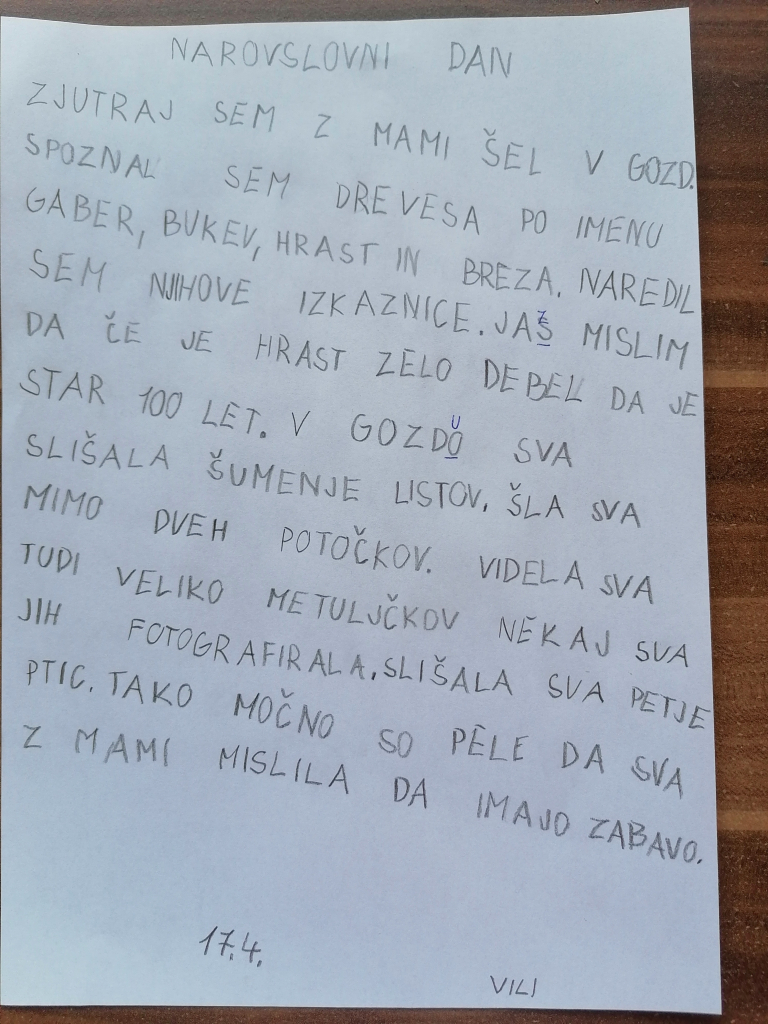 NAROVSLOVNI DAN
ZJUTRAJ SEM Z MAMI ŠEL V GOZD.
SPOZNAL SEM DREVESA PO IMENU
GABER, BUKEV, HRAST IN BREZA. NAREDIL
SEM NJIHOVE IZKAZNICE. JAŠ MISLIM
DA ČE JE HRAST ZELO DEBEL DA JE
STAR 100 LET. V GOZDO SVA
SLIŠALA ŠUMENJE LISTOV. ŠLA SVA
MIMO DVEH POTOČKOV. VIDELA SVA
TUDI VELIKO METULJČKOV NEKAJ SVA
JIH FOTOGRAFIRALA. SLIŠALA SVA PETJE
PTIC. TAKO MOČNO SO PELE DA SVA
Z MAMI MISLILA DA IMAJO ZABAVO.
17.4.
VILI